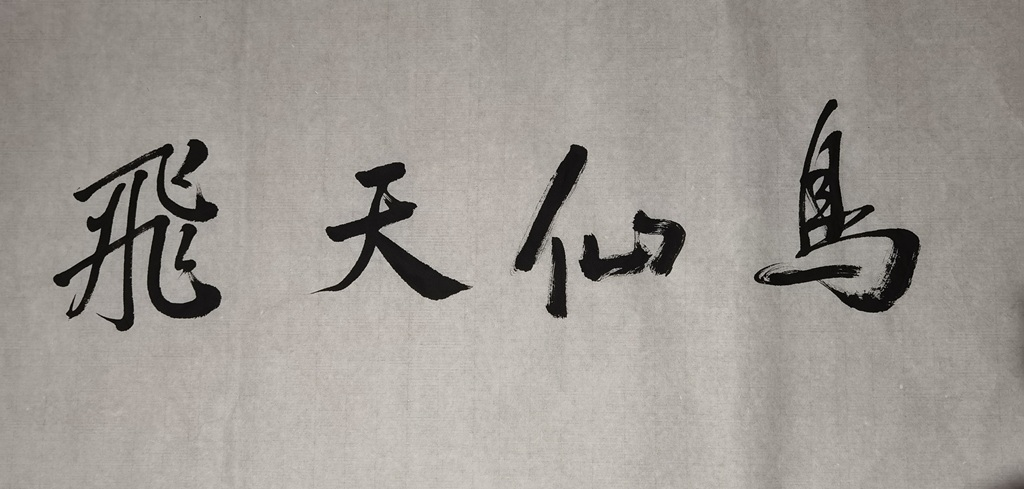 飛天仙鳥